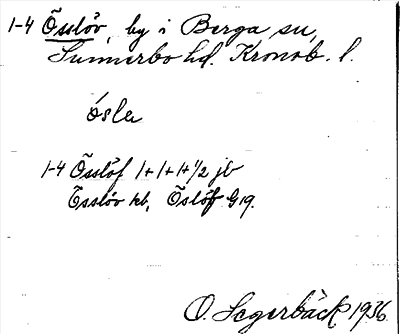 1-4 Össlöv, by i Berga sn,
Sunnerbo hd. Kronob. l.
ósla
1-4 Össlöf 1+1+1+1/2 jb
Össlöv kb, Öslöf G19.
O. Segerbäck 1936